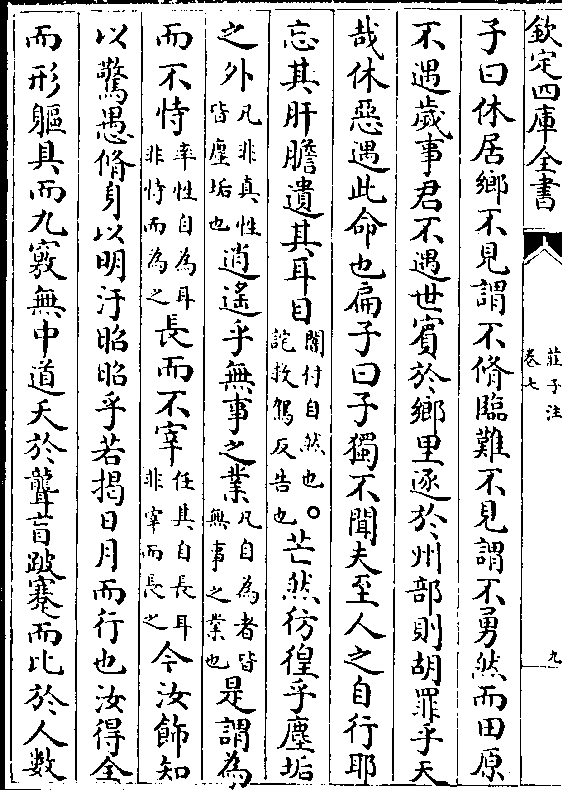 欽定四庫全書
莊子注
卷七
九
子曰休居鄉不見謂不脩臨難不見謂不勇然而田原
不遇歲事君不遇世賓於鄉里逐於州部則胡罪乎天
哉休惡遇此命也扁子曰子獨不聞夫至人之自行耶
忘其肝膽遺其耳目闇付自然也○詑救駕反告也芒然彷徨乎塵垢
之外凡非真性皆塵垢也逍遙乎無事之業凡自為者皆無事之業也是謂為
而不恃率性自為耳非恃而為之長而不宰任其自長耳非宰而長之今汝飾知
以驚愚脩身以明汙昭昭乎若揭日月而行也汝得全
而形軀具而九竅無中道夭於聾盲跛蹇而比於人數